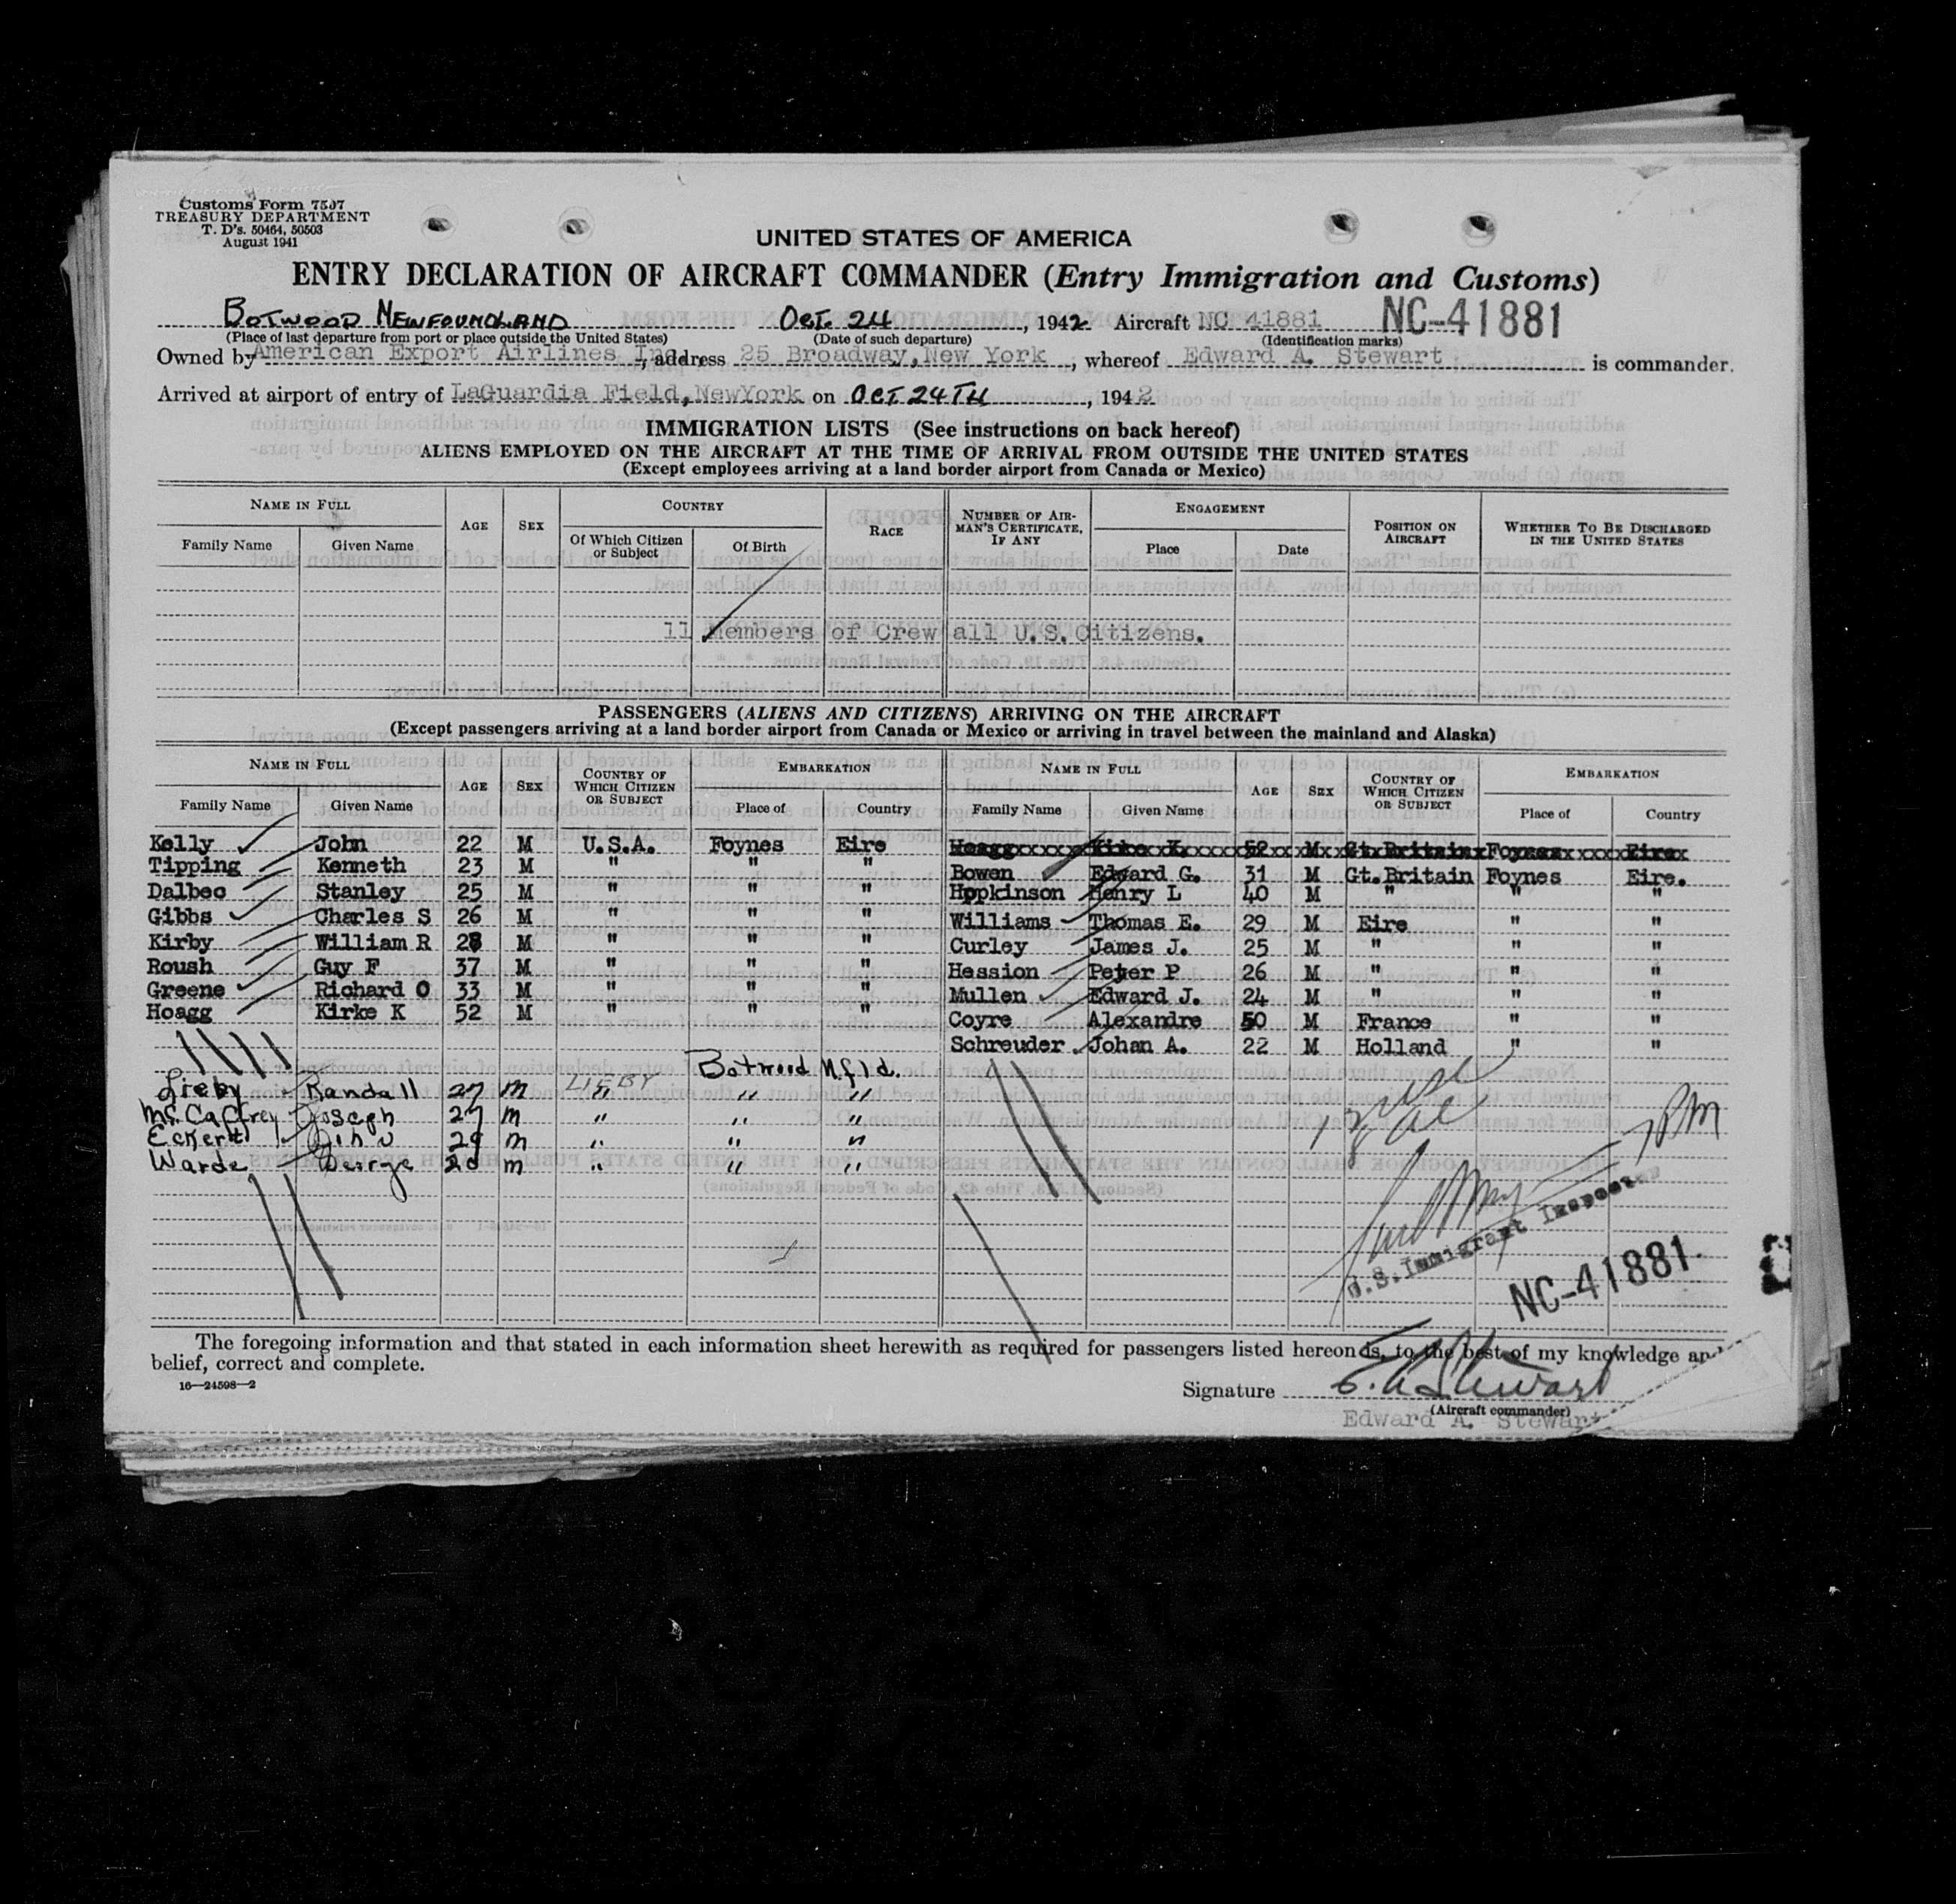 Customs Form 7507
TREASURY DEPARTMENT
T. D's. 50464, 50503
August 1941
UNITED STATES OF AMERICA
ENTRY DECLARATION OF AIRCRAFT COMMANDER (Entry Immigration and Customs)
BOTWOOD NEWFOUNDLAND OCT. 24, 1942 Aircraft NC 41881 NC-41881
(Place of last departure from port or place outside the United States) (Date of such departure) (Identification marks)
Owned by American Export Airlines Inc., address 25 Broadway, New York, whereof Edward A. Stewart is commander.
Arrived at airport of entry of LaGuardia Field, NewYork on OCT 24TH, 1942
IMMIGRATION LISTS (See instructions on back hereof)
ALIENS EMPLOYED ON THE AIRCRAFT AT THE TIME OF ARRIVAL FROM OUTSIDE THE UNITED STATES
(Except employees arriving at a land border airport from Canada or Mexico)
NAME IN FULL AGE SEX COUNTRY RACE NUMBER OF AIRMAN'S CERTIFICATE, IF ANY ENGAGEMENT POSITION ON AIRCRAFT WHETHER TO BE DISCHARGED IN THE UNITED STATES
Family Name Given Name Of Which Citizen or Subject Of Birth Place Date
11 Members of Crew all U.S. Citizens.
PASSENGERS (ALIENS AND CITIZENS) ARRIVING ON THE AIRCRAFT
(Except passengers arriving at a land border airport from Canada or Mexico or arriving in travel between the mainland and Alaska)
NAME IN FULL AGE SEX COUNTRY OF WHICH CITIZEN OR SUBJECT EMBARKATION NAME IN FULL AGE SEX COUNTRY OF WHICH CITIZEN OR SUBJECT EMBARKATION
Family Name Given Name Place of Country Family Name Given Name Place of Country
Kelly John 22 M U.S.A. Foynes Eire
Tipping Kenneth 23 M " " "
Dalbec Stanley 25 M " " "
Gibbs Charles S 26 M " " "
Kirby William R 28 M " " "
Roush Guy F 37 M " " "
Greene Richard O 33 M " " "
Hoagg Kirke K 52 M " " "
Botwood Nfld.
Lieby Randall 27 M LIEBY " " "
McCaffrey Joseph 27 M " " "
Eckert John 29 M " " "
Warde George 28 M " " "
Hoagg Kirke K. 52 M Gt.Britain Foynes Eire
Bowen Edward G. 31 M Gt.Britain Foynes Eire.
Hopkinson Henry L 40 M " " "
Williams Thomas E. 29 M Eire " "
Curley James J. 25 M " " "
Hession Peter P 26 M " " "
Mullen Edward J. 24 M " " "
Coyre Alexandre 50 M France " "
Schreuder Johan A. 22 M Holland " "
7PM
U.S. Immigrant Inspector
NC-41881
The foregoing information and that stated in each information sheet herewith as required for passengers listed hereon is, to the best of my knowledge and
belief, correct and complete.
16—24598—2
Signature E. A. Stewart
(Aircraft commander)
Edward A. Stewart